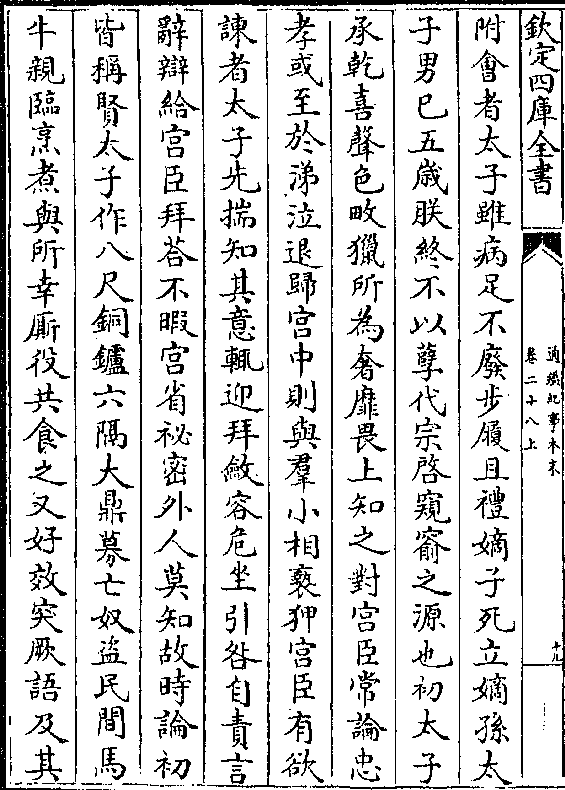 欽定四庫全書
通鑑紀事本末
卷二十八上
十九
附會者太子雖病足不廢步履且禮嫡子死立嫡孫太
子男已五歲朕終不以孽代宗啓窺窬之源也初太子
承乾喜聲色畋獵所為奢靡畏上知之對宮臣常論忠
孝或至於涕泣退歸宮中則與羣小相䙝狎宮臣有欲
諫者太子先揣知其意輒迎拜斂容危坐引咎自責言
辭辯給宮臣拜荅不暇宮省祕密外人莫知故時論初
皆稱賢太子作八尺銅鑪六隅大鼎募亡奴盜民間馬
牛親臨烹煮與所幸厮役共食之又好效突厥語及其